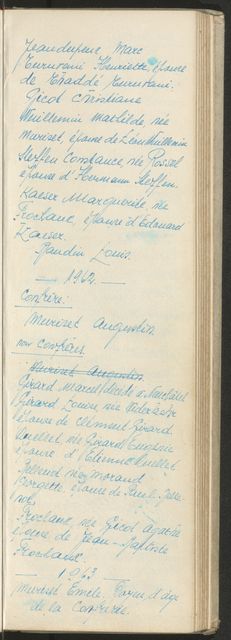 Jeandupeux Marc
Turuvani Henriette épouse
de Thaddé Turuvani.
Gicot Christiane
Wuillemin Mathilde née
Muriset, épouse de Léon Wuillemin
Steffen Constance née Rossel
épouse d'Hermann Steffen.
Kaeser Marguerite née
Frochaux, épouse d'Edouard
Kaeser.
Gaudin Louis.
— 1962 —
Confrère:
Muriset Augustin
non confrères
Muriset Augustin
Girard Marcel décédé à Neuchâtel
Girard Louise née
épouse de Clément Girard.
Ruedin née Girard Eugénie
épouse d'Etienne
née Morand
Georgette épouse de Paul
Frochaux née Gicot Agathe
épouse de Jean-Baptiste
Frochaux.
— 1963 —
Muriset Emile. Doyen d'âge
de la Confrérie.